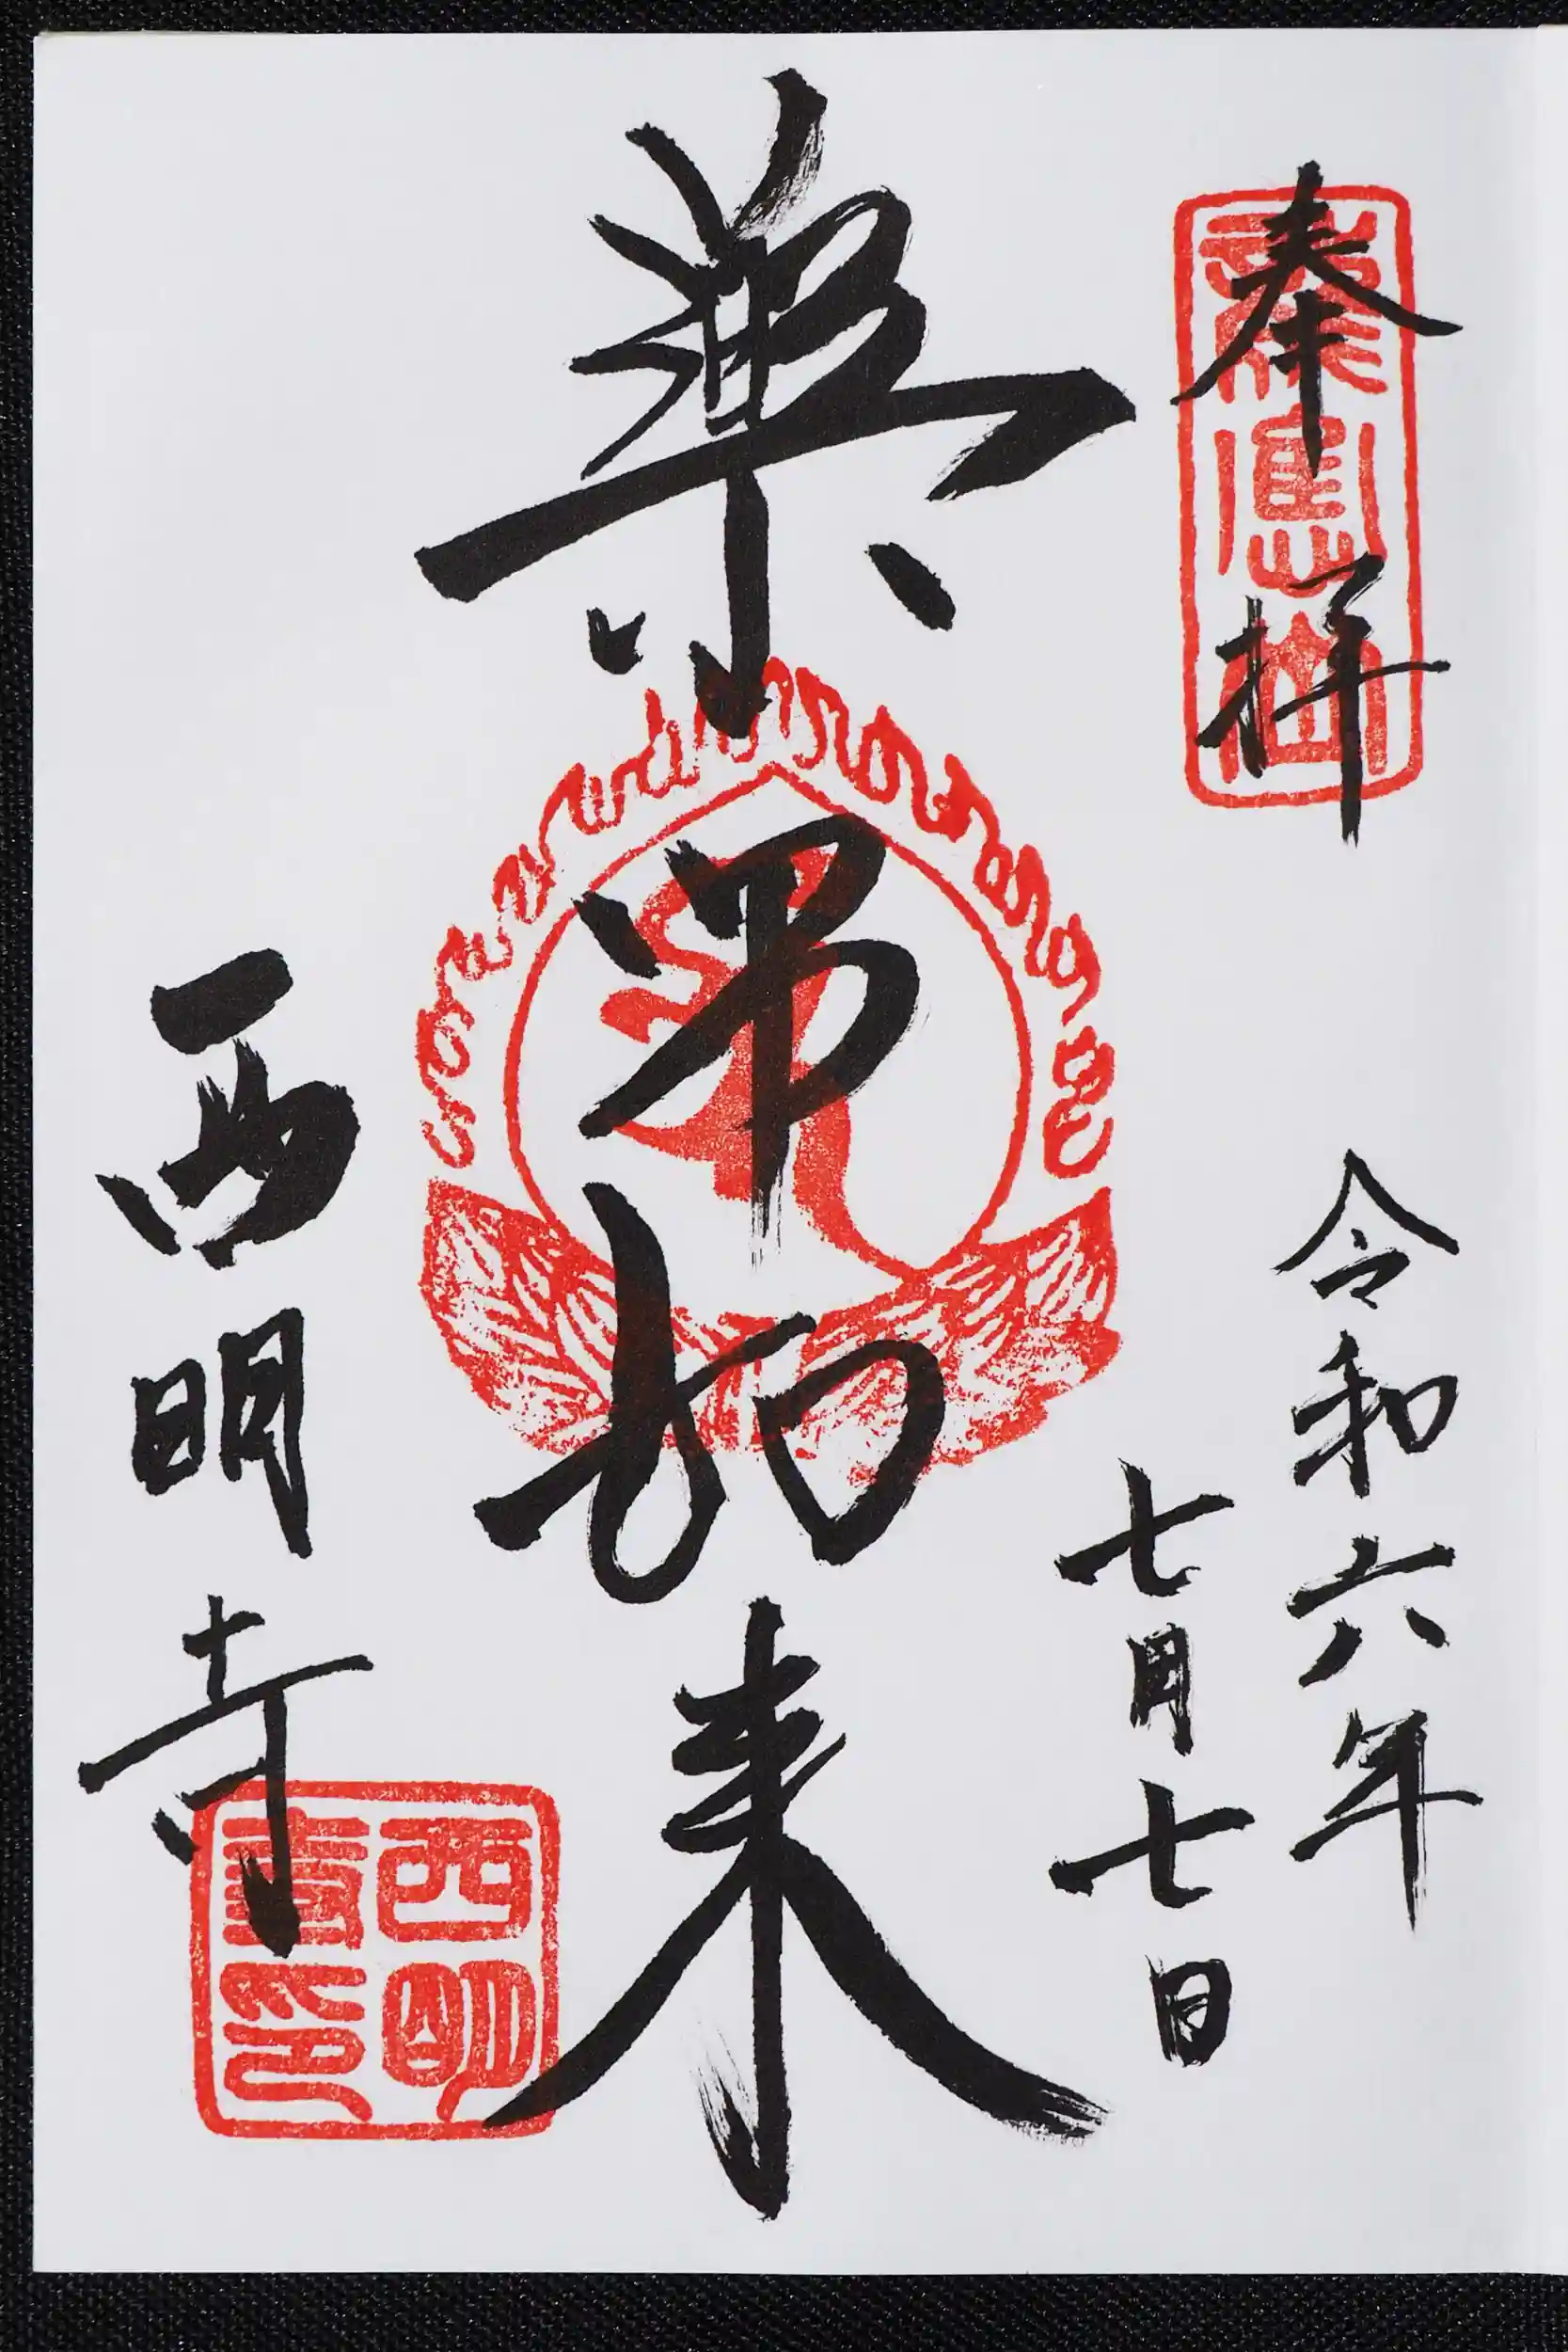 奉拝
龍應山
令和六年
七月七日
薬師如来
西明寺
西明
印